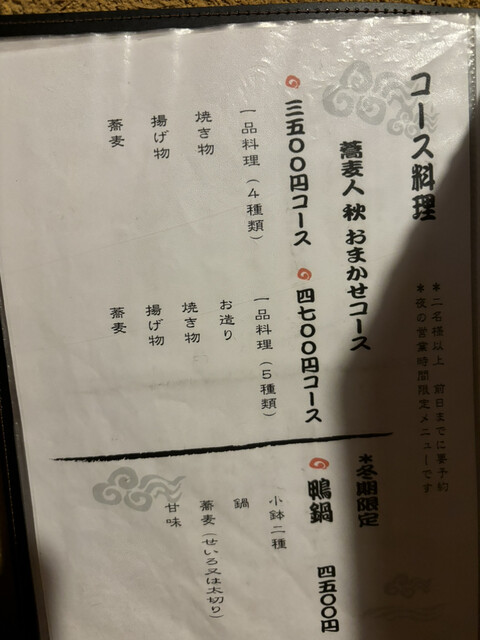 コース料理
*二名様以上 前日までに要予約
*夜の営業時間限定メニューです
蕎麦人 秋 おまかせコース
三五〇〇円コース
一品料理(4種類)
焼き物
揚げ物
蕎麦
四七〇〇円コース
一品料理(5種類)
お造り
焼き物
揚げ物
蕎麦
*冬期限定
鴨鍋 四五〇〇円
小鉢二種
鍋
蕎麦(せいろ又は太切り)
甘味